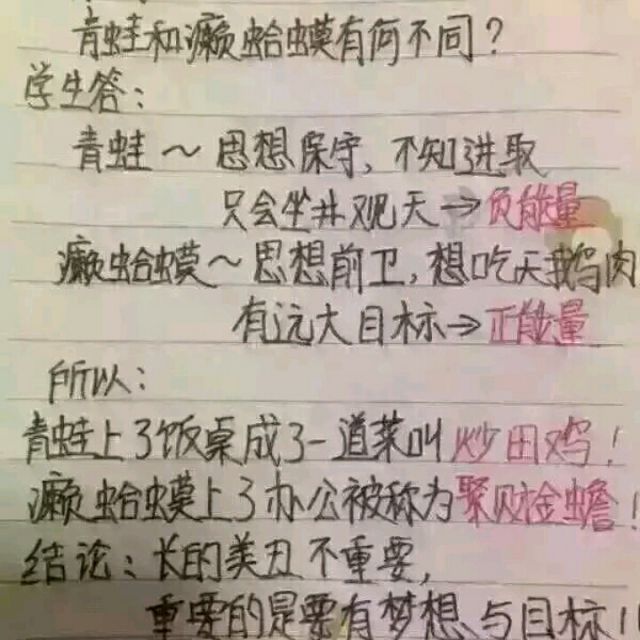 青蛙和癞蛤蟆有何不同？
学生答：
青蛙～思想保守，不知进取
只会坐井观天→负能量
癞蛤蟆～思想前卫，想吃天鹅肉
有远大目标→正能量
所以：
青蛙上了饭桌成了一道菜叫炒田鸡！
癞蛤蟆上了办公被称为聚财金蟾！
结论：长的美丑不重要，
重要的是要有梦想、与目标！！